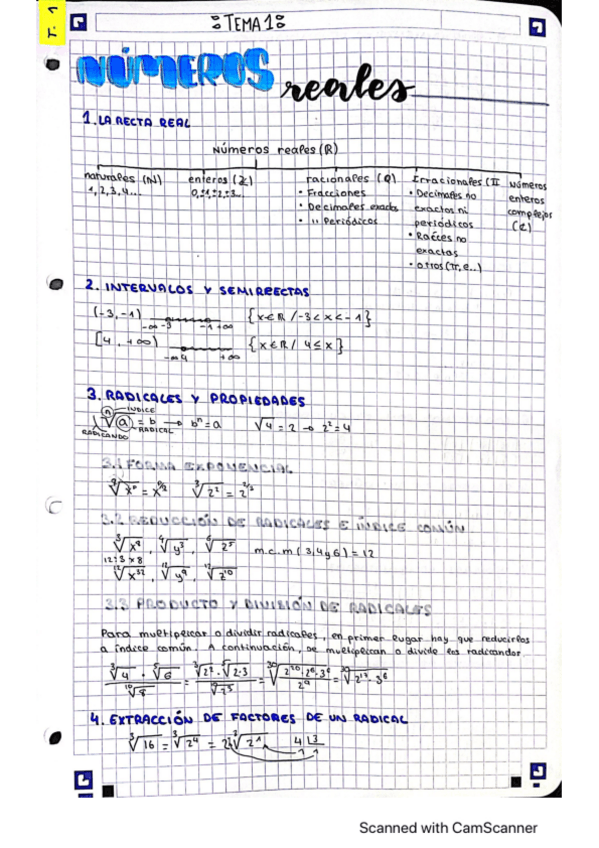 T. 1
TEMA 1
NÚMEROS reales
1. LA RECTA REAL
Números reales (R)
naturales (N)
1, 2, 3, 4...
enteros (Z)
0, ±1, ±2, ±3...
racionales (Q)
• Fracciones
• Decimales exactos
• " Periódicos
Irracionales (II
• Decimales no
exactos ni
periódicos
• Raíces no
exactas
• otros (π, e..)
Números
enteros
complejos
(C)
2. INTERVALOS Y SEMIRRECTAS
(-3, -1) -∞ -3 -1 +∞ {x∈R / -3 < x < -1}
[4, +∞) -∞ 4 +∞ {x∈R / 4 ≤ x}
3. RADICALES Y PROPIEDADES
ÍNDICE
ⁿ√a = b → bⁿ = a √4 = 2 → 2² = 4
RADICANDO RADICAL
3.1 FORMA EXPONENCIAL
³√2² = 2^2/3
3.2 REDUCCIÓN DE RADICALES E ÍNDICE COMÚN
³√x⁸, ⁴√y³, ⁶√2⁵ m.c.m (3,4 y 6) = 12
12:3 x 8
¹²√x³², ¹²√y⁹, ¹²√z¹⁰
3.3 PRODUCTO Y DIVISIÓN DE RADICALES
Para multiplicar o dividir radicales, en primer lugar hay que reducirlos
a índice común. A continuación, se multiplican o divide los radicandos.
³√4 · ⁵√6 / ¹⁰√8 = ³√2² · ⁵√2·3 / ¹⁰√2³ = ³⁰√2²⁰·2⁶·3⁶ / 2⁹ = ³⁰√2¹⁷·3⁶
4. EXTRACCIÓN DE FACTORES DE UN RADICAL
³√16 = ³√2⁴ = 2 ³√2¹ 4 3
1 1
Scanned with CamScanner